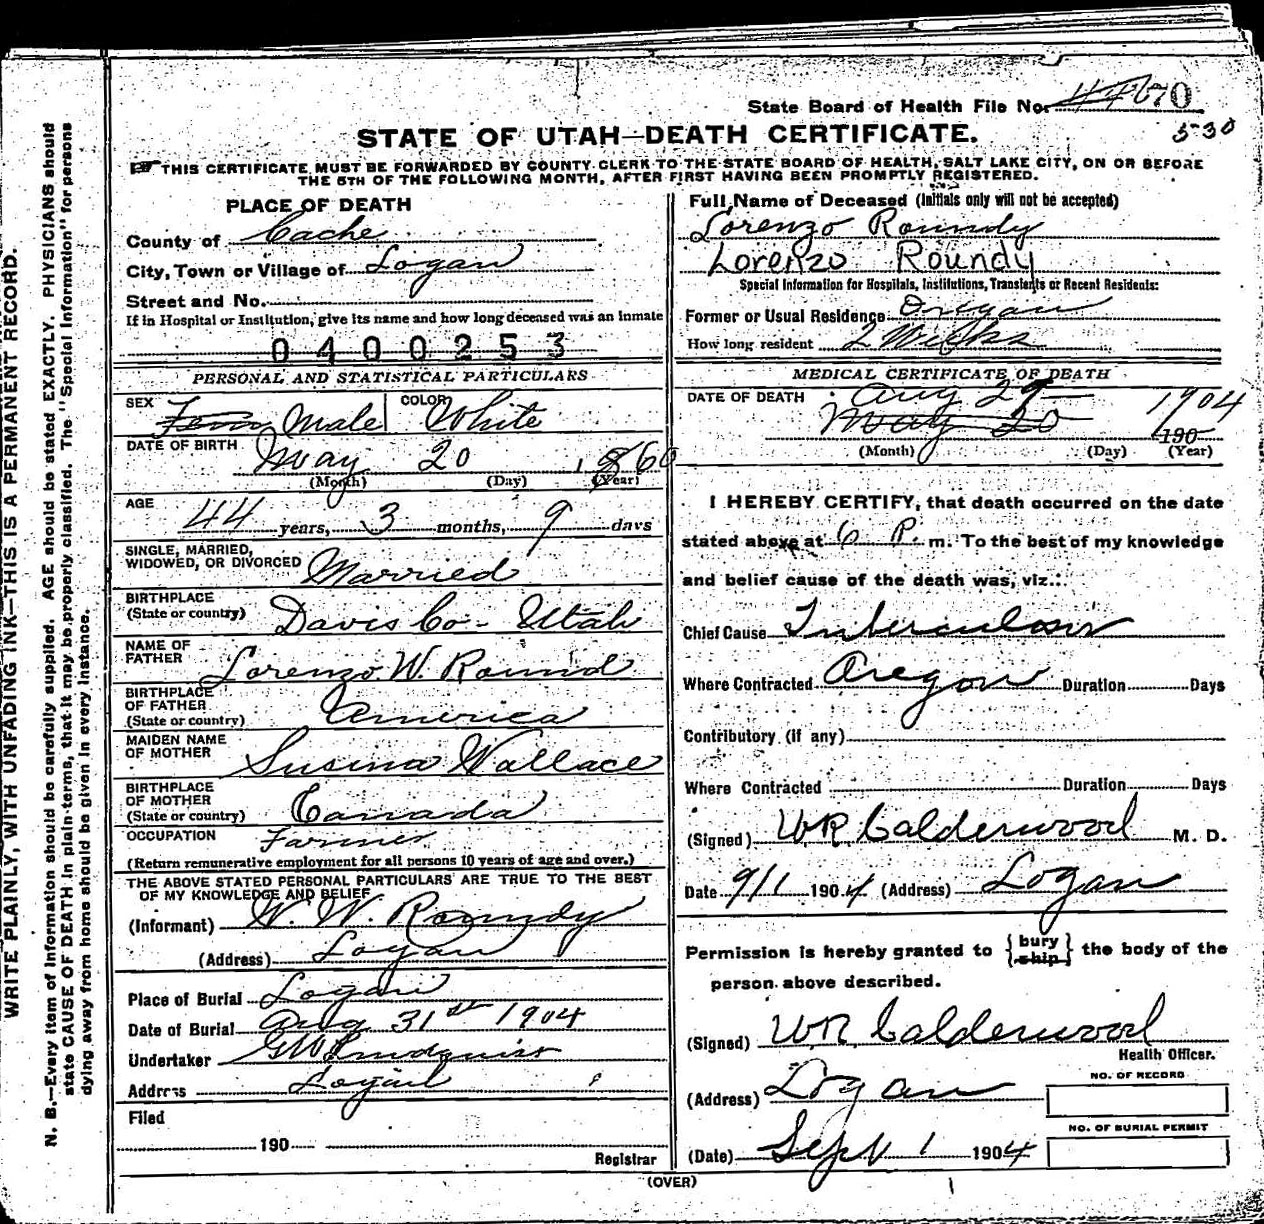 State Board of Health File No. 4470
530
STATE OF UTAH—DEATH CERTIFICATE.
THIS CERTIFICATE MUST BE FORWARDED BY COUNTY CLERK TO THE STATE BOARD OF HEALTH, SALT LAKE CITY, ON OR BEFORE
THE 5TH OF THE FOLLOWING MONTH, AFTER FIRST HAVING BEEN PROMPTLY REGISTERED.
WRITE PLAINLY, WITH UNFADING INK—THIS IS A PERMANENT RECORD.
N. B.—Every item of information should be carefully supplied. AGE should be stated EXACTLY. PHYSICIANS should
state CAUSE OF DEATH in plain terms, that it may be properly classified. The "Special Information" for persons
dying away from home should be given in every instance.
PLACE OF DEATH
County of Cache
City, Town or Village of Logan
Street and No.
If in Hospital or Institution, give its name and how long deceased was an inmate
0400253
PERSONAL AND STATISTICAL PARTICULARS
SEX Fem Male COLOR White
DATE OF BIRTH May 20 1860
(Month) (Day) (Year)
AGE 44 years, 3 months, 9 days
SINGLE, MARRIED,
WIDOWED, OR DIVORCED Married
BIRTHPLACE
(State or country) Davis Co- Utah
NAME OF
FATHER Lorenzo W. Round
BIRTHPLACE
OF FATHER
(State or country) America
MAIDEN NAME
OF MOTHER Susina Wallace
BIRTHPLACE
OF MOTHER
(State or country) Canada
OCCUPATION Farmer
(Return remunerative employment for all persons 10 years of age and over.)
THE ABOVE STATED PERSONAL PARTICULARS ARE TRUE TO THE BEST
OF MY KNOWLEDGE AND BELIEF
(Informant) W. W. Roundy
(Address) Logan
Place of Burial Logan
Date of Burial Aug 31st 1904
Undertaker GW Lindquist
Address Logan
Filed
190
Registrar
Full Name of Deceased (Initials only will not be accepted)
Lorenzo Roundy
Lorenzo Roundy
Special Information for Hospitals, Institutions, Transients or Recent Residents:
Former or Usual Residence Oregan
How long resident 2 Weeks
MEDICAL CERTIFICATE OF DEATH
DATE OF DEATH Aug 29 1904
May 20 190
(Month) (Day) (Year)
I HEREBY CERTIFY, that death occurred on the date
stated above at 6 P. m. To the best of my knowledge
and belief cause of the death was, viz.:
Chief Cause Tuberculosis
Where Contracted Oregon Duration Days
Contributory (if any)
Where Contracted Duration Days
(Signed) WR Calderwood M. D.
Date 9/1 1904 (Address) Logan
Permission is hereby granted to {bury ship} the body of the
person above described.
(Signed) WR Calderwood
Health Officer.
(Address) Logan
NO. OF RECORD
NO. OF BURIAL PERMIT
(Date) Sept 1 1904
(OVER)